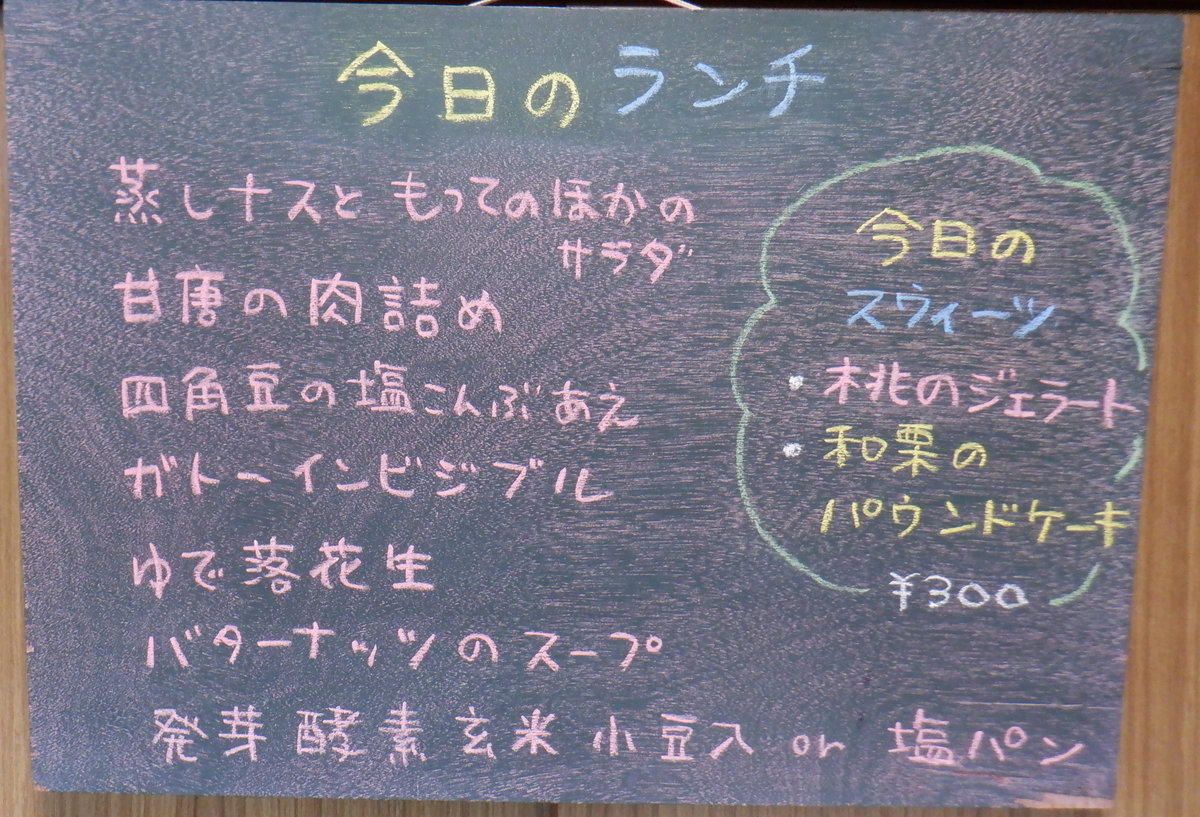 今日のランチ
蒸しナスともってのほかの
サラダ
甘唐の肉詰め
四角豆の塩こんぶあえ
ガトーインビジブル
ゆで落花生
バターナッツのスープ
発芽酵素玄米小豆入 or 塩パン
今日の
スウィーツ
・桃のジェラート
・和栗の
パウンドケーキ
¥300